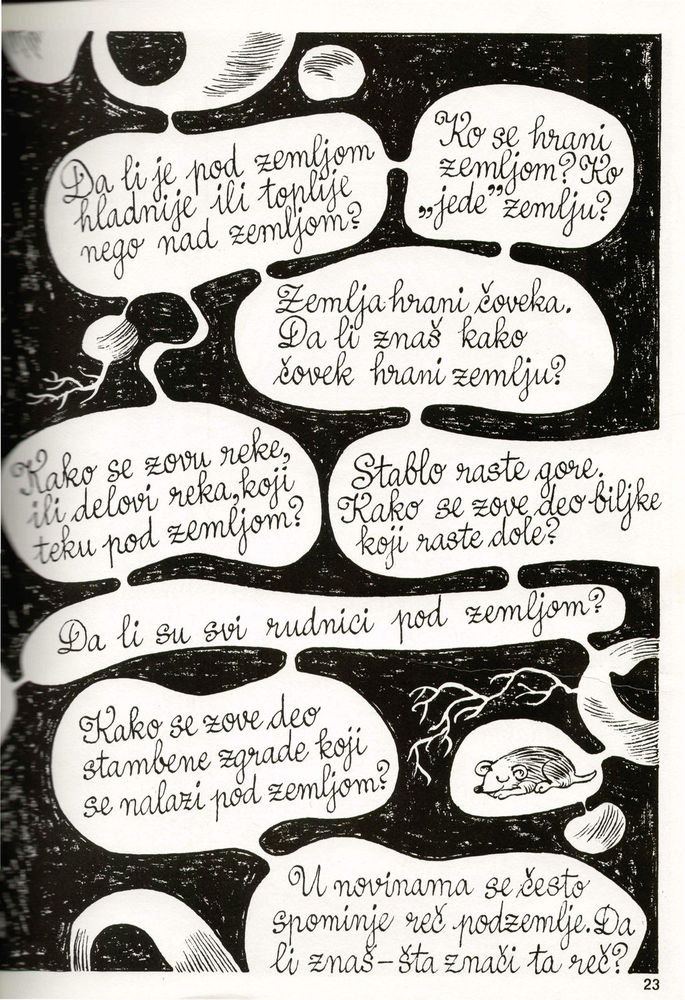 Da li je pod zemljom
hladnije ili toplije
nego nad zemljom?
Ko se hrani
zemljom? Ko
„jede” zemlju?
Zemlja hrani čoveka.
Da li znaš kako
čovek hrani zemlju?
Kako se zovu reke,
ili delovi reka, koji
teku pod zemljom?
Stablo raste gore.
Kako se zove deo biljke
koji raste dole?
Da li su svi rudnici pod zemljom?
Kako se zove deo
stambene zgrade koji
se nalazi pod zemljom?
U novinama se često
spominje reč podzemlje. Da
li znaš – šta znači ta reč?
23